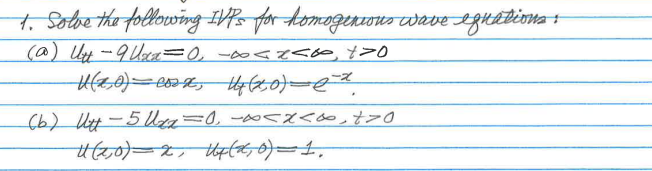 1. Solve the following IVPs for homogenious wave equations :
(a) Utt - 9 Uxx = 0, -∞ < x < ∞, t > 0
U(x,0) = cos x, Ut(x,0) = e^-x.
(b) Utt - 5 Uxx = 0, -∞ < x < ∞, t > 0
U(x,0) = x, Ut(x,0) = 1.